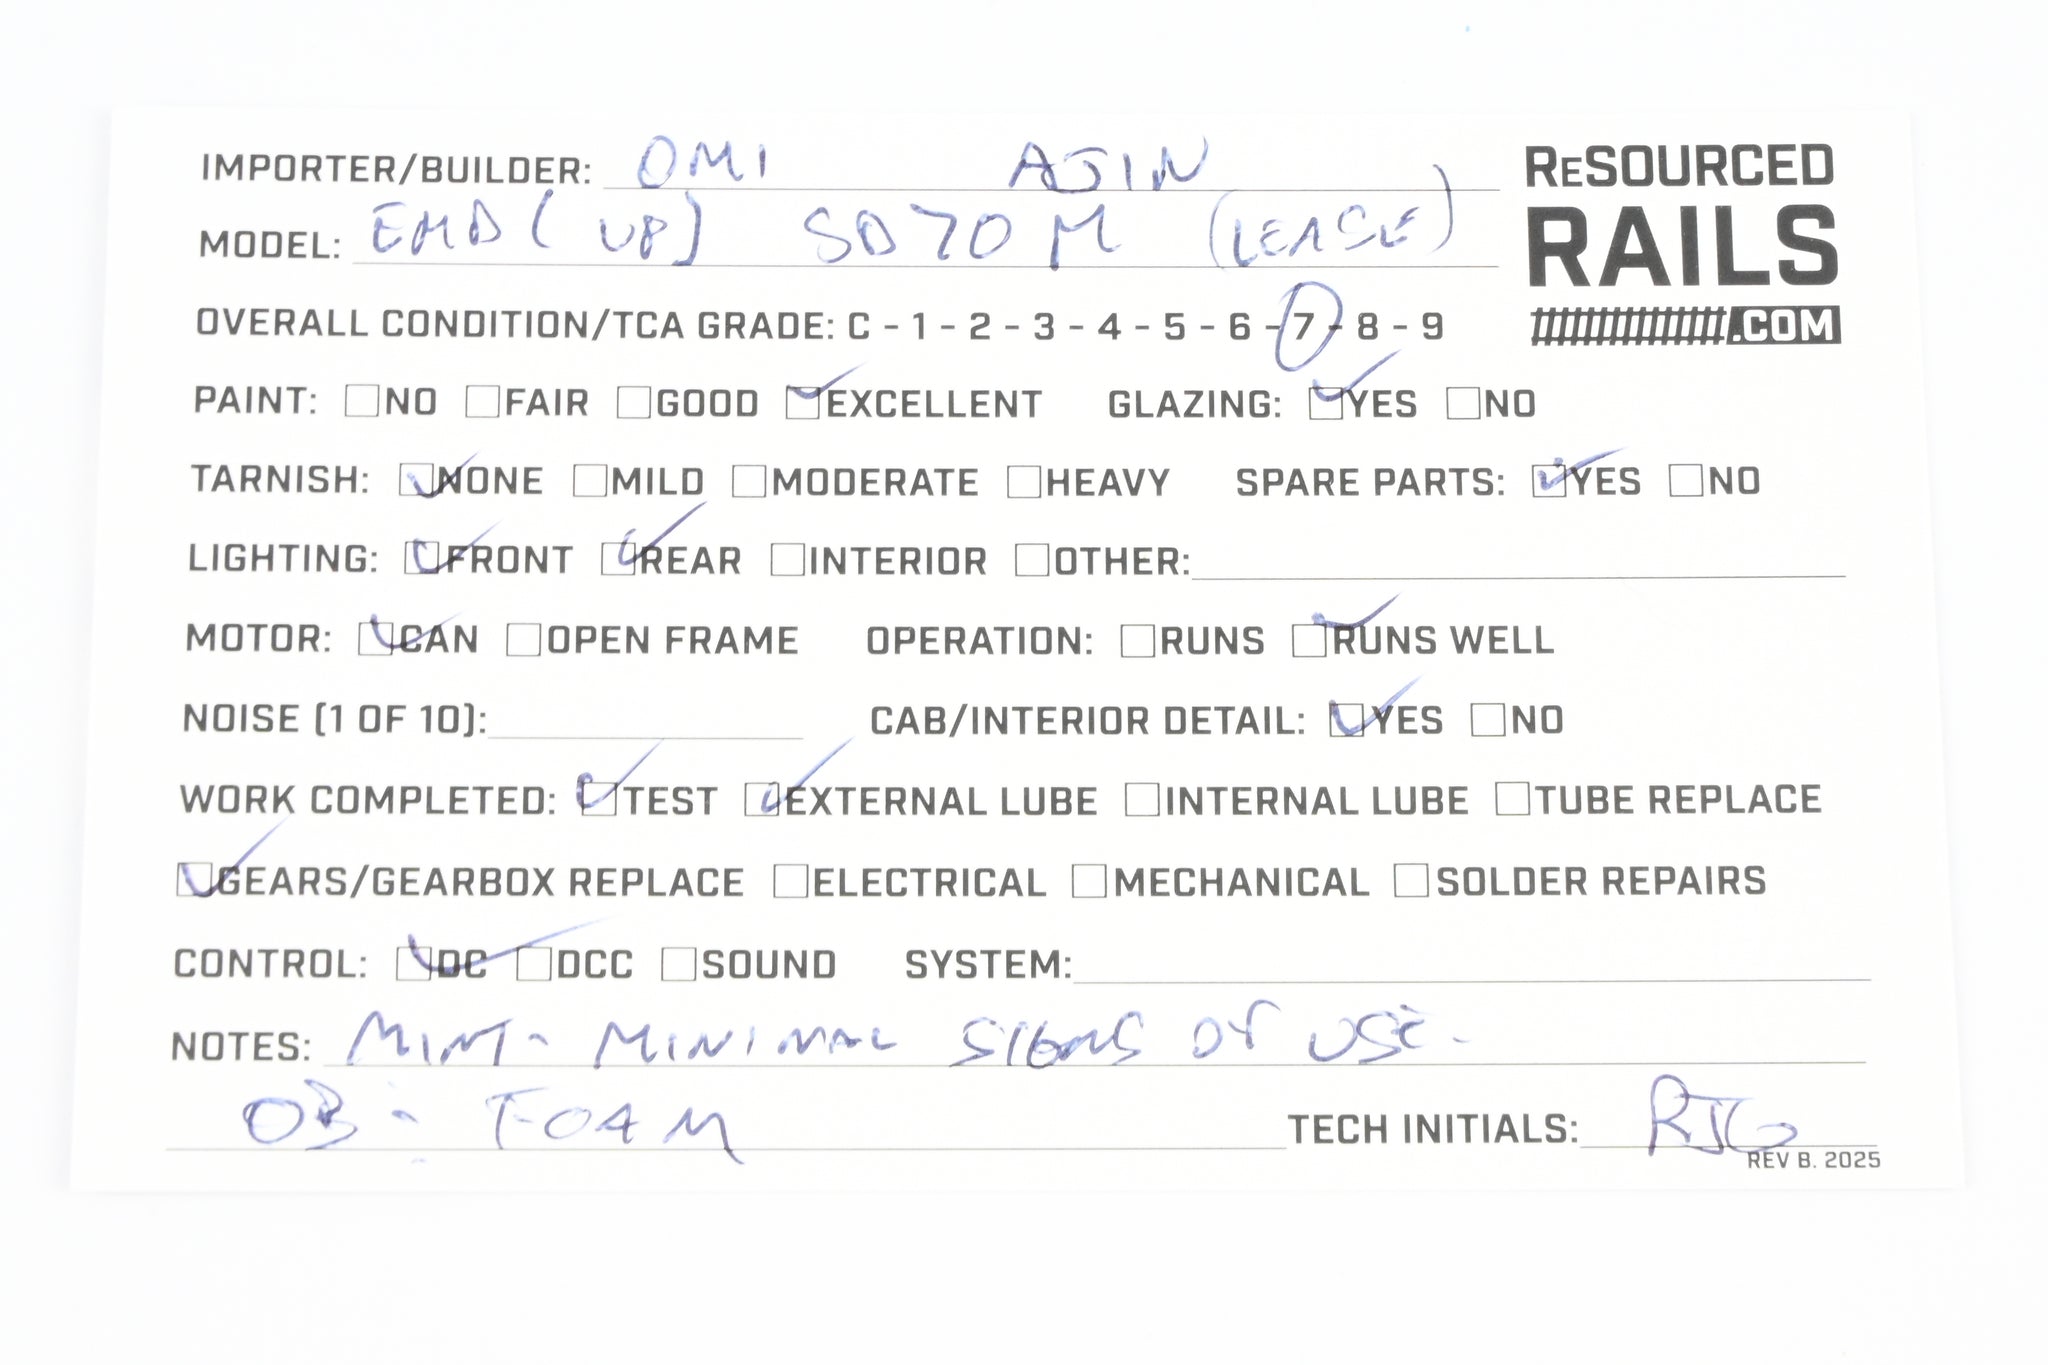 IMPORTER/BUILDER: OMI AJIN
MODEL: EMD (UP) SD70M (LEASE)
ReSOURCED
RAILS
.COM
OVERALL CONDITION/TCA GRADE: C - 1 - 2 - 3 - 4 - 5 - 6 - 7 - 8 - 9
PAINT: ☐NO ☐FAIR ☐GOOD ☑EXCELLENT GLAZING: ☑YES ☐NO
TARNISH: ☑NONE ☐MILD ☐MODERATE ☐HEAVY SPARE PARTS: ☑YES ☐NO
LIGHTING: ☑FRONT ☑REAR ☐INTERIOR ☐OTHER:
MOTOR: ☑CAN ☐OPEN FRAME OPERATION: ☐RUNS ☑RUNS WELL
NOISE (1 OF 10): CAB/INTERIOR DETAIL: ☑YES ☐NO
WORK COMPLETED: ☑TEST ☑EXTERNAL LUBE ☐INTERNAL LUBE ☐TUBE REPLACE
☑GEARS/GEARBOX REPLACE ☐ELECTRICAL ☐MECHANICAL ☐SOLDER REPAIRS
CONTROL: ☑DC ☐DCC ☐SOUND SYSTEM:
NOTES: MINT- MINIMAL SIGNS OF USE.
OB - FOAM TECH INITIALS: RJG
REV B. 2025